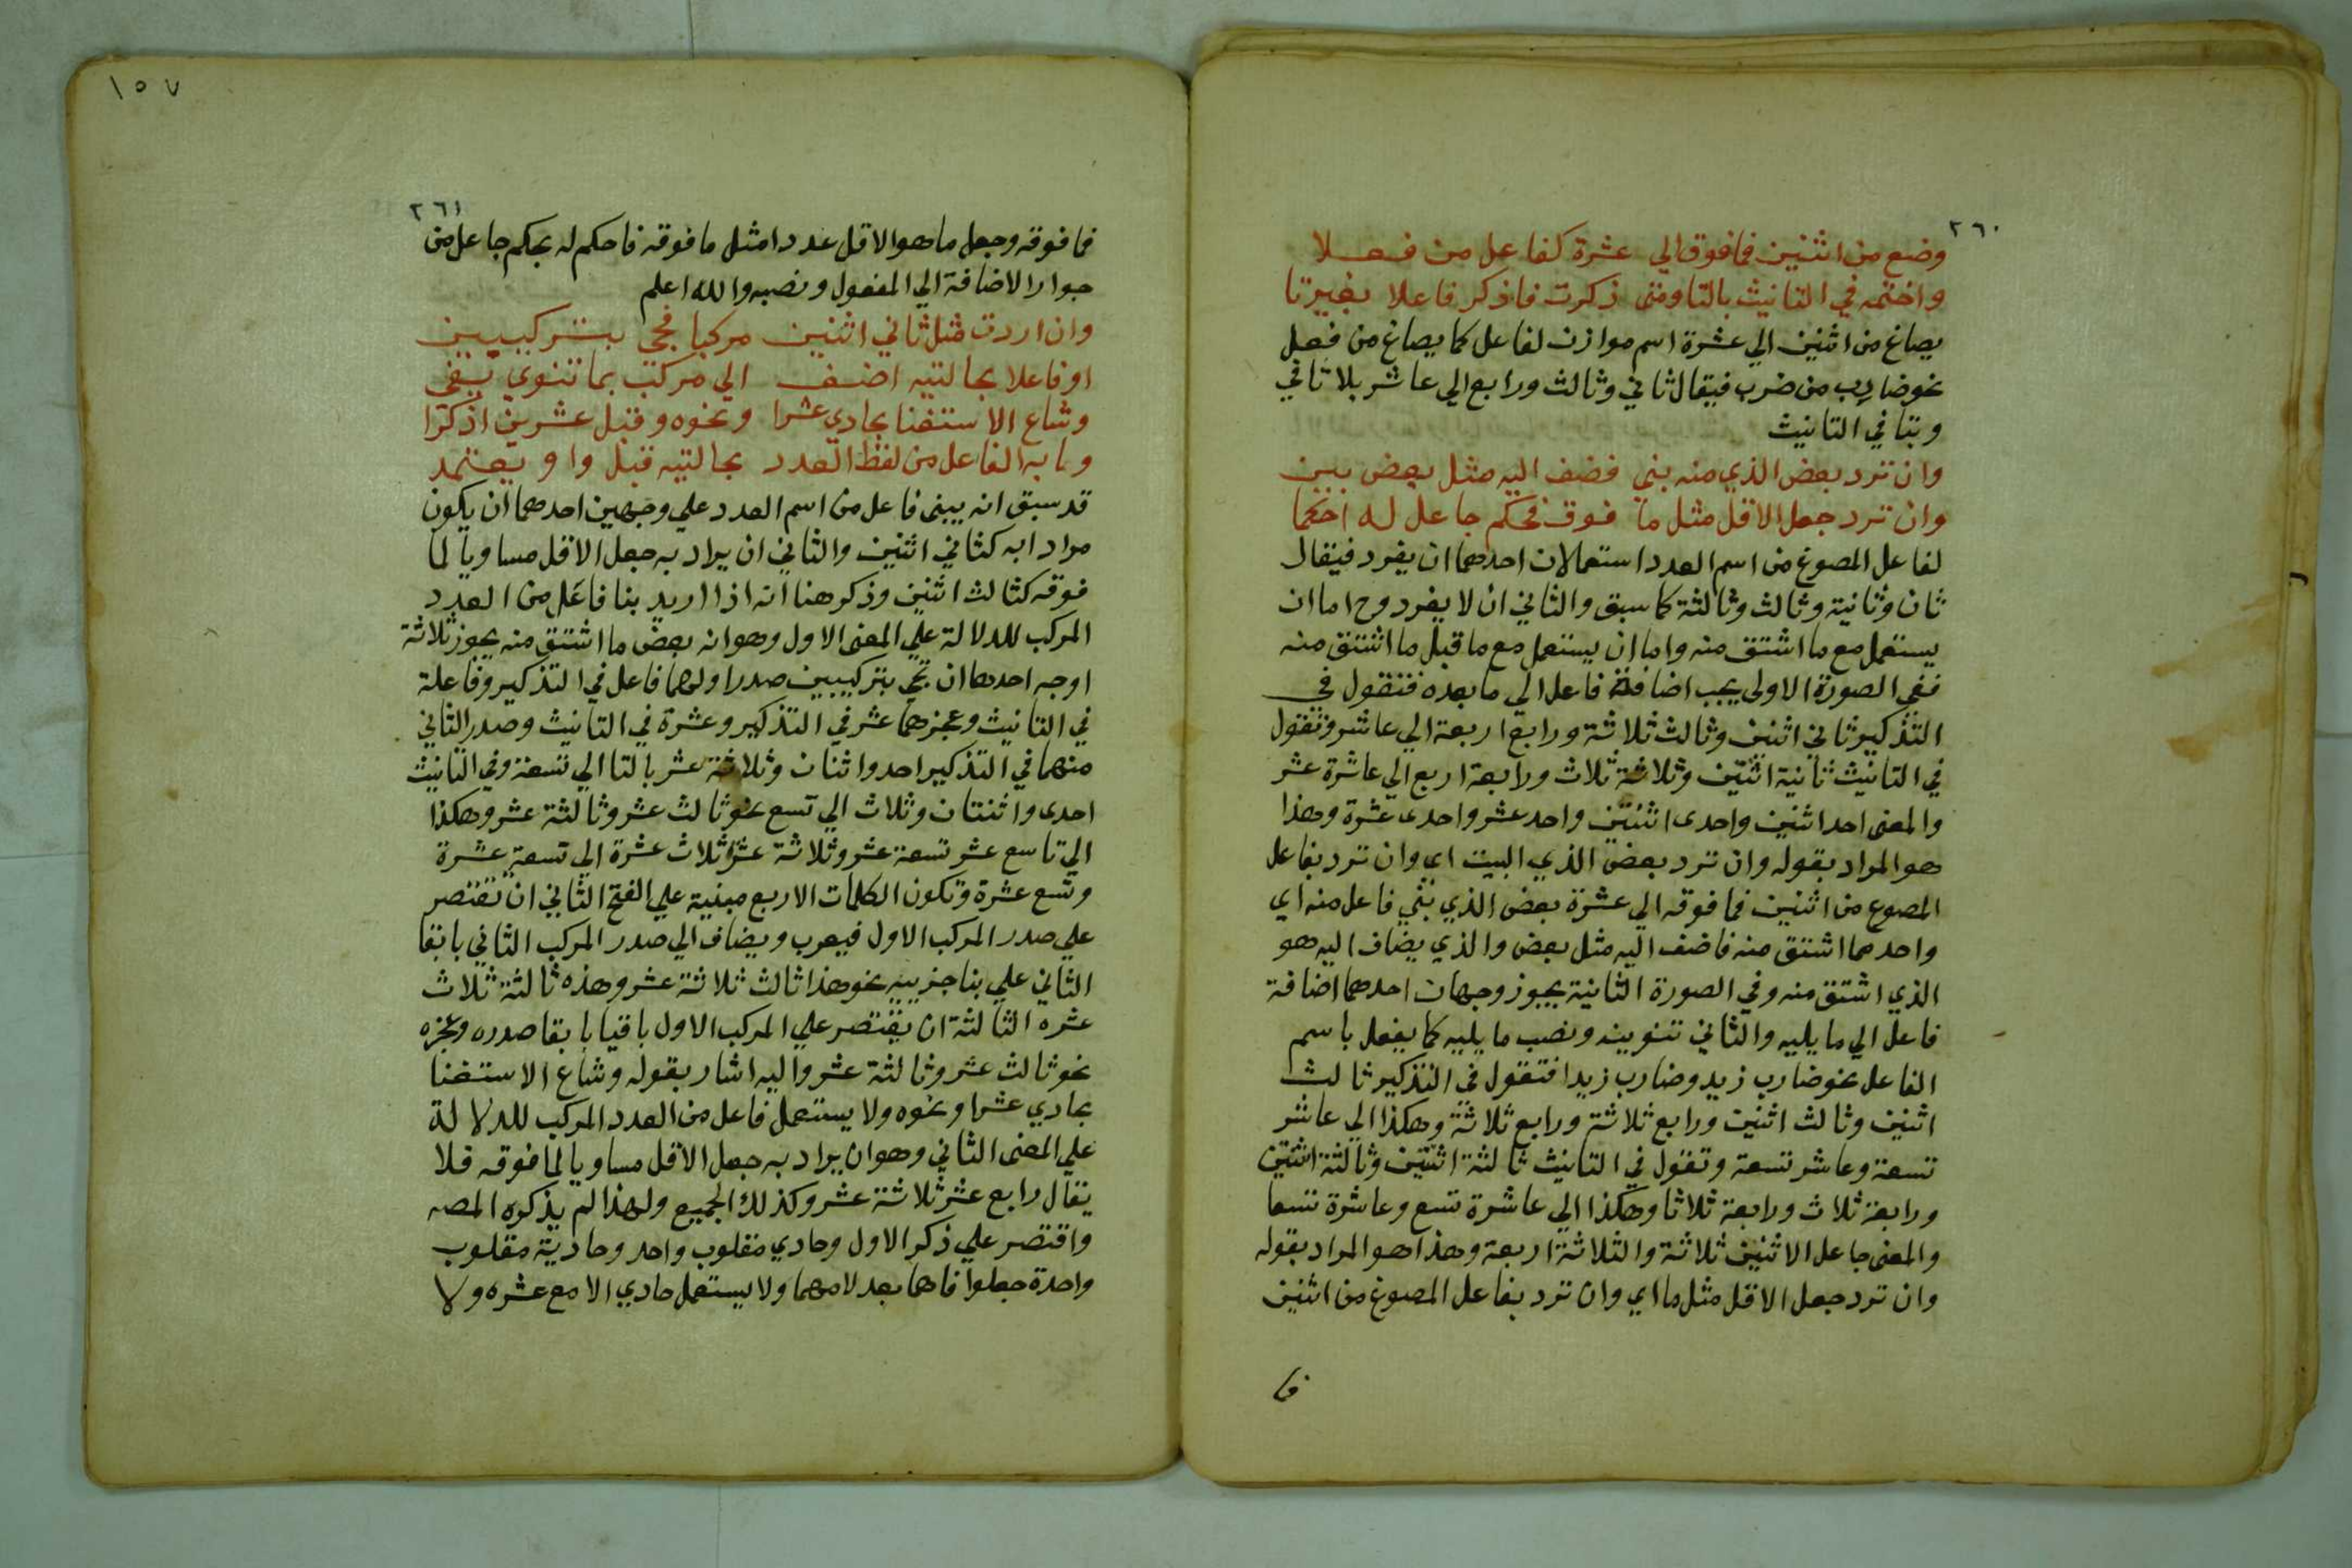 ٢٦٠
وضع من اثنين فما فوق الي عشرة كفاعل من فعلا
واختمه في التانيث بالتا ومتى ذكرت فاذكر فاعلا بغير تا
يصاغ من اثنين الي عشرة اسم موازن لفاعل كما يصاغ من فعل
نحو ضارب من ضرب فيقال ثاني وثالث ورابع الي عاشر بلا تا في
وبتا في التانيث
وان ترد بعض الذي منه بني فضف اليه مثل بعض بين
وان ترد جعل الاقل مثل ما فوق فحكم جاعل له احكما
لفاعل المصوغ من اسم العدد استعمالان احدهما ان يفرد فيقال
ثان وثانية وثالث وثالثة كما سبق والثاني ان لا يفرد وح اما ان
يستعمل مع ما اشتق منه واما ان يستعمل مع ما قبل ما اشتق منه
ففي الصورة الاولى يجب اضافة فاعل الي ما بعده فتقول في
التذكير ثاني اثنين وثالث ثلاثة ورابع اربعة الي عاشر وتقول
في التانيث ثانية اثنتين وثلاثة ثلاث ورابعة اربع الي عاشرة عشر
والمعنى احد اثنين واحدى اثنتين واحد عشر واحدى عشرة وهذا
هو المراد بقوله وان ترد بعض الذي البيت اي وان ترد بفاعل
المصوغ من اثنين فما فوقه الي عشرة بعض الذي بني فاعل منه اي
واحد مما اشتق منه فاضف اليه مثل بعض والذي يضاف اليه هو
الذي اشتق منه وفي الصورة الثانية يجوز وجهان احدهما اضافة
فاعل الي ما يليه والثاني تنوينه ونصب ما يليه كما يفعل باسم
الفاعل نحو ضارب زيد وضارب زيدا فتقول في التذكير ثالث
اثنين وثالث اثنين ورابع ثلاثة ورابع ثلاثة وهكذا الي عاشر
تسعة وعاشر تسعة وتقول في التانيث ثالثة اثنتين وثالثة اثنتين
ورابعة ثلاث ورابعة ثلاثا وهكذا الي عاشرة تسع وعاشرة تسعا
والمعنى جاعل الاثنين ثلاثة والثلاثة اربعة وهذا هو المراد بقوله
وان ترد جعل الاقل مثل ما اي وان ترد بفاعل المصوغ من اثنين
فما
١٥٧
٢٦١
فما فوقه وجعل ما هو الاقل عددا مثل ما فوقه فاحكم له بحكم جاعل من
جواز الاضافة الي المفعول ونصبه والله اعلم
وان اردت مثل ثاني اثنين مركبا فجئ بتركيبين
او فاعلا بحالتيه اضف الي مركب بما تنوي يفي
وشاع الاستغنا بحادي عشرا ونحوه وقبل عشرين اذكرا
وبابه الفاعل من لفظ العدد بحالتيه قبل واو يعتمد
قد سبق انه يبنى فاعل من اسم العدد علي وجهين احدهما ان يكون
مرادا به كثاني اثنين والثاني ان يراد به جعل الاقل مساويا لما
فوقه كثالث اثنين وذكر هنا انه اذا اريد بنا فاعل من العدد
المركب للدلالة علي المعنى الاول وهو انه بعض ما اشتق منه يجوز ثلاثة
اوجه احدها ان تجي بتركيبين صدر اولهما فاعل في التذكير وفاعلة
في التانيث وعجزهما عشر في التذكير وعشرة في التانيث وصدر الثاني
منهما في التذكير احد واثنان وثلاثة عشر بالتا الي تسعة وفي التانيث
احدى واثنتان وثلاث الي تسع نحو ثالث عشر وثالثة عشر وهكذا
الي تاسع عشر تسعة عشر وثلاثة عشر ثلاث عشرة الي تسعة عشرة
وتسع عشرة وتكون الكلمات الاربع مبنية علي الفتح الثاني ان تقتصر
علي صدر المركب الاول فيعرب ويضاف الي صدر المركب الثاني بابقا
الثاني علي بنا جزييه نحو هذا ثالث ثلاثة عشر وهذه ثالثة ثلاث
عشره الثالثة ان يقتصر علي المركب الاول باقيا بابقا صدره وعجزه
نحو ثالث عشر وثالثة عشر واليه اشار بقوله وشاع الاستغنا
بحادي عشرا ونحوه ولا يستعمل فاعل من العدد المركب للدلالة
علي المعنى الثاني وهو ان يراد به جعل الاقل مساويا لما فوقه فلا
يقال رابع عشر ثلاثة عشر وكذلك الجميع ولهذا لم يذكره المصه
واقتصر علي ذكر الاول وحادي مقلوب واحد وحادية مقلوب
واحدة جعلوا فاهما بعد لامهما ولا يستعمل حادي الا مع عشره ولا